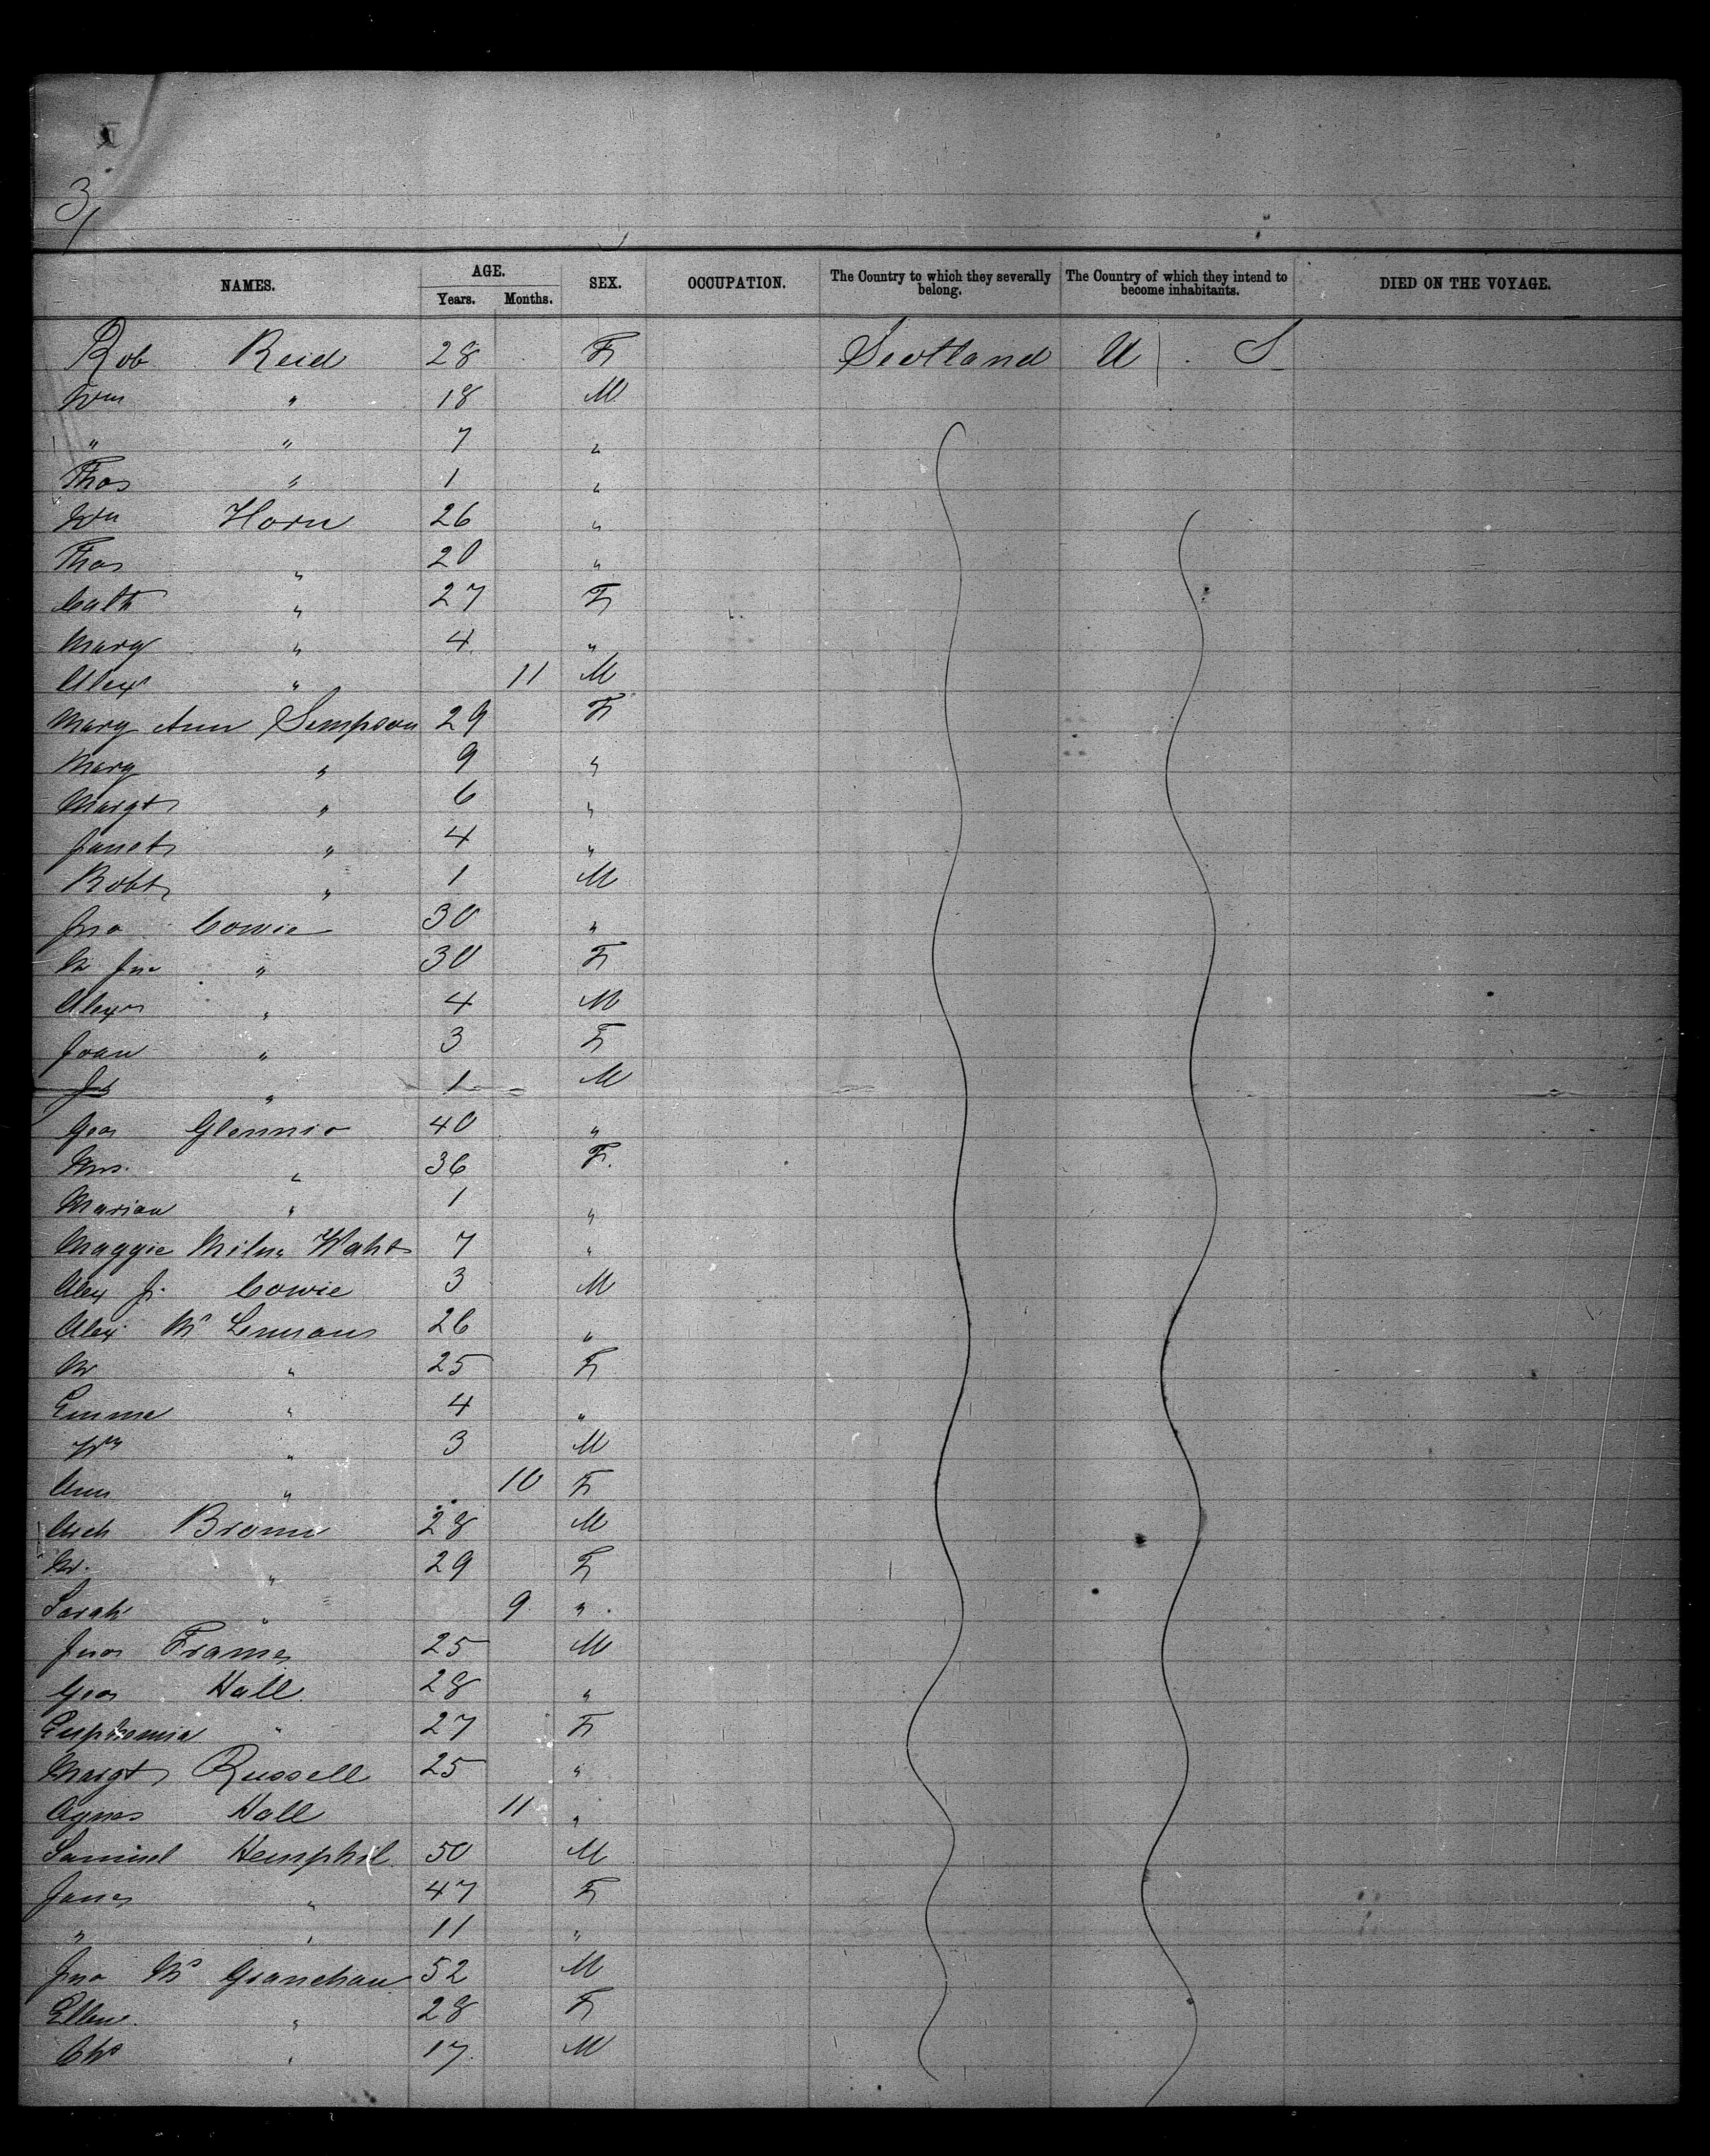 3/
NAMES. AGE. Years. Months. SEX. OCCUPATION. The Country to which they severally belong. The Country of which they intend to become inhabitants. DIED ON THE VOYAGE.
Rob Reid 28 F Scotland U S
Wm " 18 M
" " 7 "
Thos " 1 "
Wm Horn 26 "
Thos " 20 "
Cath " 27 F
Mary " 4 "
Alexr " 11 M
Mary Ann Simpson 29 F
Mary " 9 "
Margt " 6 "
Janet " 4 "
Robt " 1 M
Jno Cowie 30 "
Jno " 30 F
Alexr " 4 M
Joan " 3 F
" 1 M
Geo Glennie 40 "
Mrs. " 36 F.
Marian " 1 "
Maggie Milne 7 "
Alex J. Cowie 3 M
Alex Mc 26 "
" 25 F
Emma " 4 "
Wm " 3 M
Ann " 10 F
Arch Brown 28 M
" 29 F
Sarah " 9 "
Jno Frame 25 M
Geo Hall 28 "
Euphemia " 27 F
Margt Russell 25 "
Agnes Hall 11 "
Samuel Hemphil 50 M
Jane " 47 F
" " 11 "
Jno Mc 52 M
Ellen " 28 F
Chs " 17 M